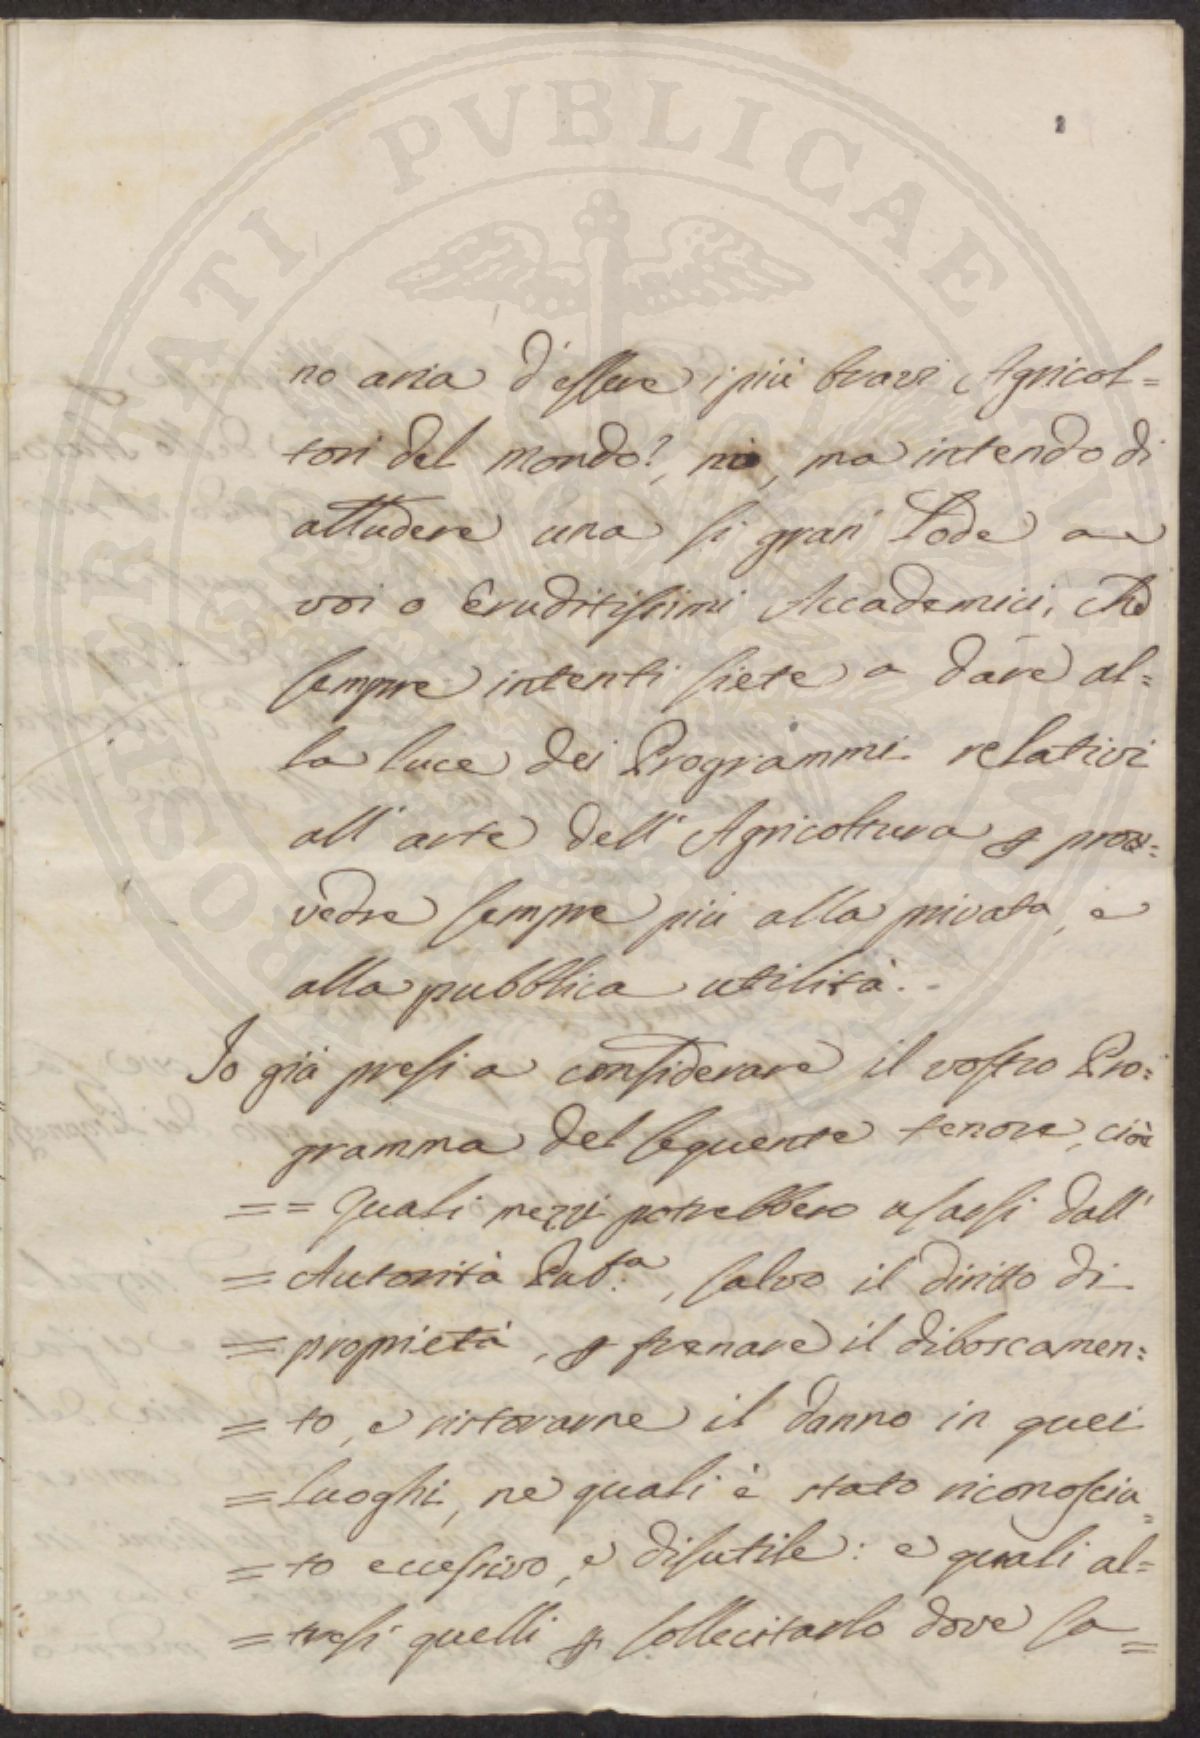 PROSPERITATI PVBLICAE AVGENDAE
2
no aria d'essere i più bravi Agricol=
tori del Mondo?, nò, ma intendo di
alludere una si gran Lode a
voi o Eruditissimi Accademici, che
sempre intenti siete a dare al=
la luce dei Programmi relativi
all'arte dell'Agricoltura p prov=
vedre sempre più alla privata, e
alla pubblica utilità.
Io già presi a considerare il vostro Pro=
gramma del seguente tenore, cioè
== Quali mezzi potrebbero usarsi dall'
= Autorità Pub.ª, salvo il diritto di
= proprietà, p frenare il diboscamen=
= to, e ristorarne il danno in quei
= luoghi, ne quali è stato riconosciu=
= to eccessivo, e disutile: e quali al=
= tresì quelli p sollecitarlo dove sa=